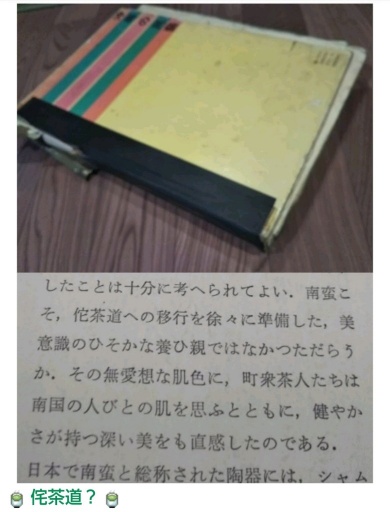 したことは十分に考へられてよい．南蛮こ
そ，侘茶道への移行を徐々に準備した，美
意識のひそかな養ひ親ではなかつただらう
か．その無愛想な肌色に，町衆茶人たちは
南国の人びとの肌を思ふとともに，健やか
さが持つ深い美をも直感したのである．
日本で南蛮と総称された陶器には，シャム
🍵 侘茶道？ 🍵